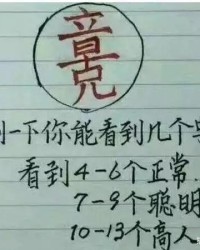 一下你能看到几个字
看到4-6个正常.
7-9个聪明
10-13个高人